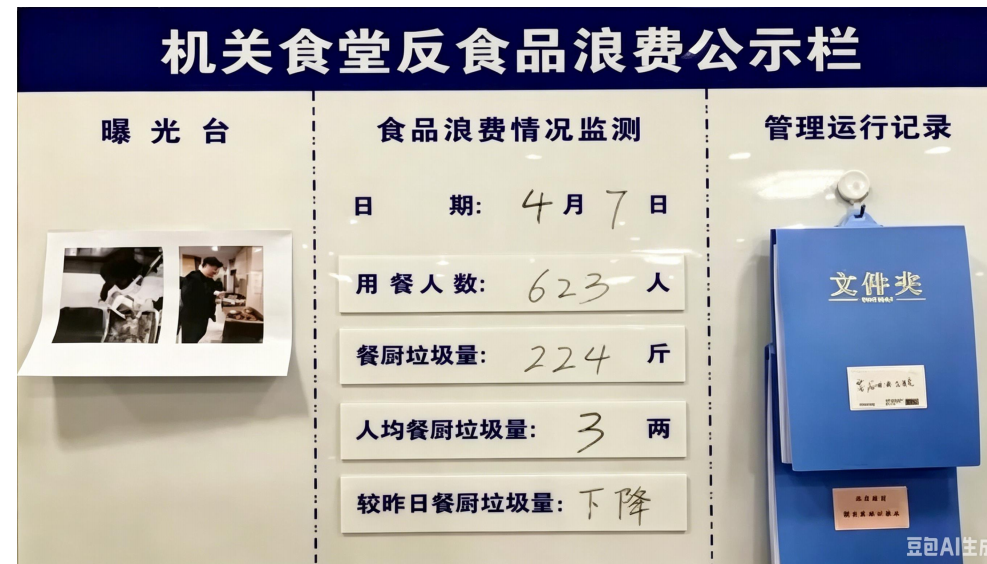 机关食堂反食品浪费公示栏
曝光台
食品浪费情况监测
日期: 4月7日
用餐人数: 623人
餐厨垃圾量: 224斤
人均餐厨垃圾量: 3两
较昨日餐厨垃圾量: 下降
管理运行记录
文件夹
豆包AI生成